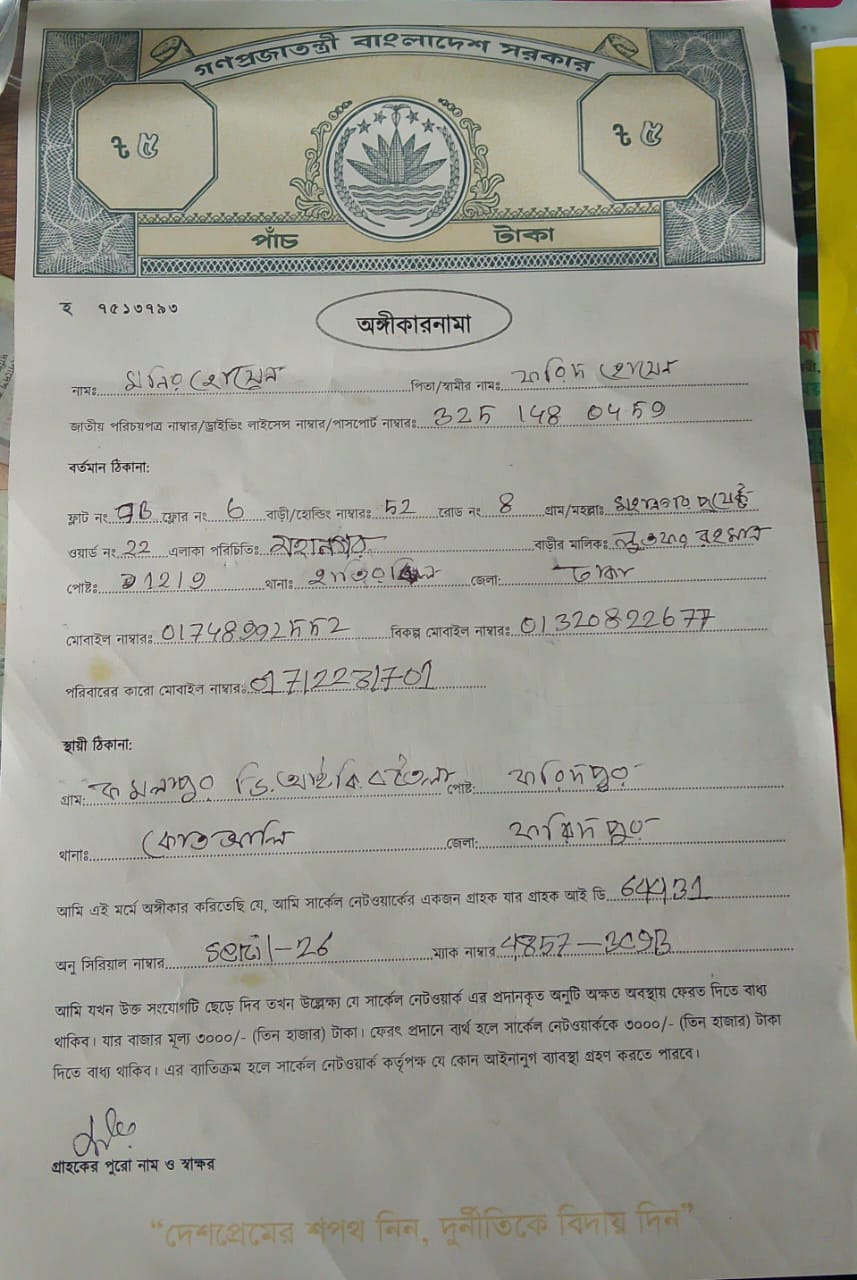 গণপ্রজাতন্ত্রী বাংলাদেশ সরকার
ট ৫ ট ৫
পাঁচ টাকা
হ ৭৫১৩৭৯৩
অঙ্গীকারনামা
নামঃ মনির হোসেন পিতা/স্বামীর নাম: ফরিদ হোসেন
জাতীয় পরিচয়পত্র নাম্বার/ড্রাইভিং লাইসেন্স নাম্বার/পাসপোর্ট নাম্বারঃ 325 148 0459
বর্তমান ঠিকানা:
ফ্লাট নং ফ্লোর নং 6 বাড়ী/হোল্ডিং নাম্বারঃ 52 রোড নং 8 গ্রাম/মহল্লাঃ
ওয়ার্ড নং 22 এলাকা পরিচিতিঃ বাড়ীর মালিকঃ রহমান
পোষ্টঃ 1219 থানাঃ জেলা: ঢাকা
মোবাইল নাম্বারঃ 01748992552 বিকল্প মোবাইল নাম্বারঃ 01320822677
পরিবারের কারো মোবাইল নাম্বারঃ 01712231701
স্থায়ী ঠিকানা:
গ্রাম: কমলাপুর ডি.আই.বি. বটতলা পোষ্ট: ফরিদপুর
থানাঃ কোতোয়ালি জেলা: ফরিদপুর
আমি এই মর্মে অঙ্গীকার করিতেছি যে, আমি সার্কেল নেটওয়ার্কের একজন গ্রাহক যার গ্রাহক আই ডি 64431
অনু সিরিয়াল নাম্বার serial-26 ম্যাক নাম্বার 4857-3C9B
আমি যখন উক্ত সংযোগটি ছেড়ে দিব তখন উল্লেক্ষ্য যে সার্কেল নেটওয়ার্ক এর প্রদানকৃত অনুটি অক্ষত অবস্থায় ফেরত দিতে বাধ্য
থাকিব। যার বাজার মূল্য ৩০০০/- (তিন হাজার) টাকা। ফেরৎ প্রদানে ব্যর্থ হলে সার্কেল নেটওয়ার্ককে ৩০০০/- (তিন হাজার) টাকা
দিতে বাধ্য থাকিব। এর ব্যাতিক্রম হলে সার্কেল নেটওয়ার্ক কর্তৃপক্ষ যে কোন আইনানুগ ব্যাবস্থা গ্রহণ করতে পারবে।
গ্রাহকের পুরো নাম ও স্বাক্ষর
“দেশপ্রেমের শপথ নিন, দুর্নীতিকে বিদায় দিন”